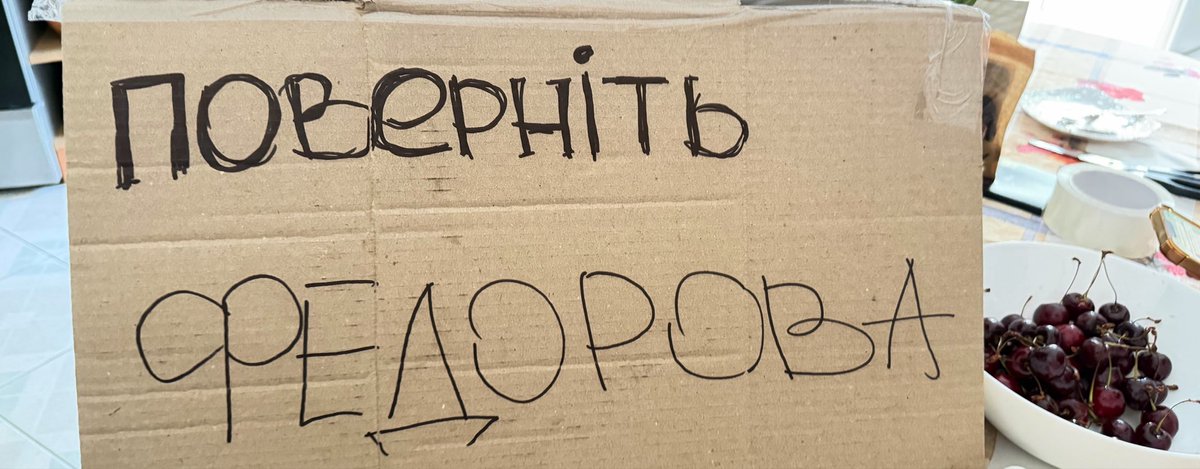 поверніть
ФЕДОРОВА